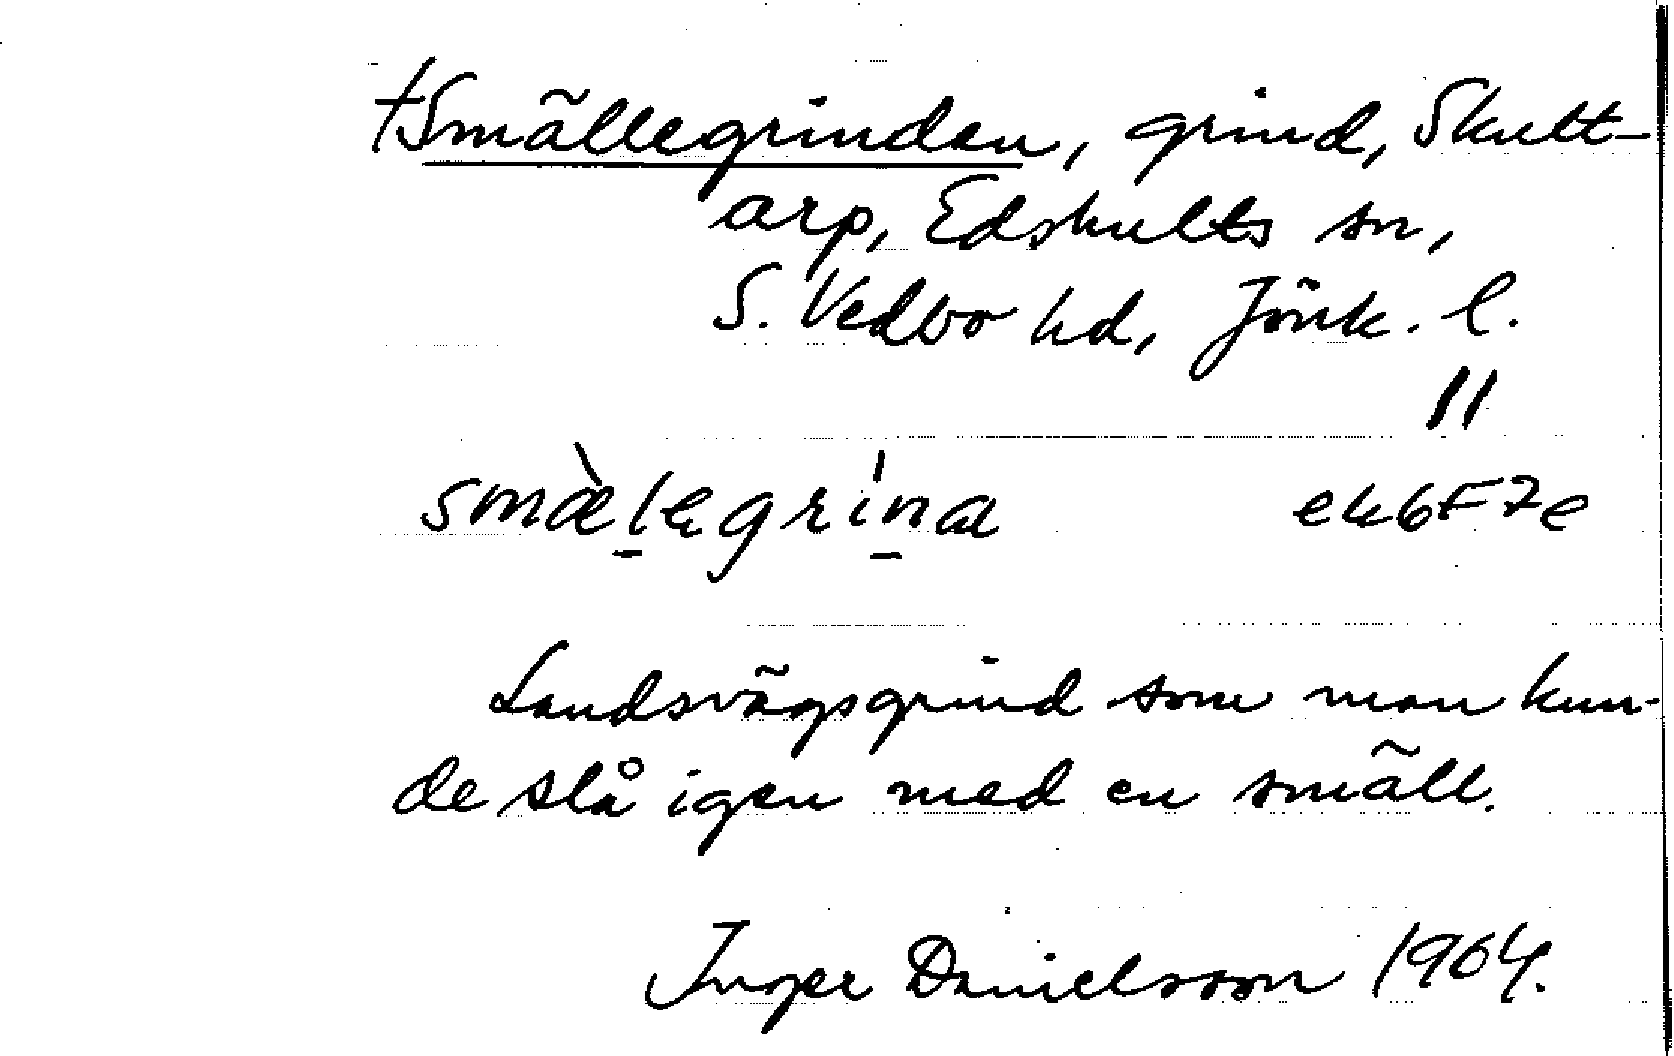 †Smällegrinden, grind, Skult-
arp, Edshults sn,
S. Vedbo hd, Jönk. l.
11
smæ̀l̠egrín̠a ek6F7e
Landsvägsgrind som man kun-
de slå igen med en smäll.
Inger Danielsson 1964.